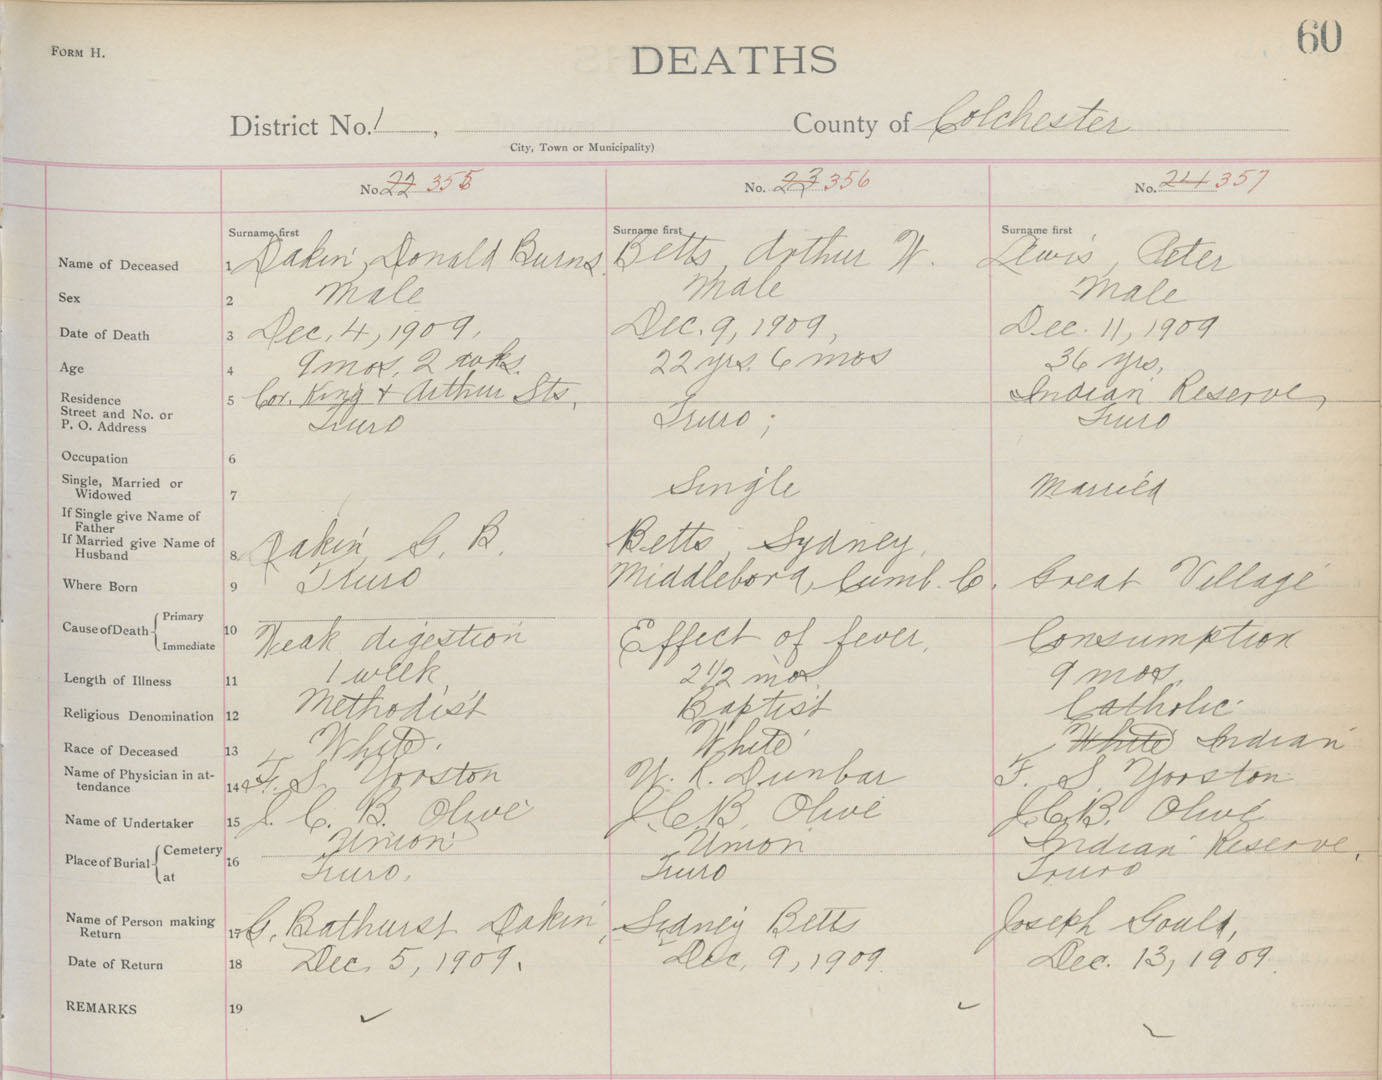 60
FORM H.
DEATHS
District No. 1, County of Colchester
City, Town or Municipality)
No. 22 355 No. 23 356 No. 24 357
Surname first Surname first Surname first
Name of Deceased 1 Dakin, Donald Burns. Betts, Arthur W. Lewis, Peter
Sex 2 Male Male Male
Date of Death 3 Dec. 4, 1909. Dec. 9, 1909, Dec. 11, 1909
Age 4 9 mos. 2 wks. 22 yrs. 6 mos 36 yrs,
Residence 5 Cor. King + Arthur Sts, Indian Reserve,
Street and No. or
P. O. Address Truro Truro; Truro
Occupation 6
Single, Married or
Widowed 7 Single Married
If Single give Name of
Father
If Married give Name of
Husband 8 Dakin, G. B. Betts, Sydney,
Where Born 9 Truro Middleboro, Cumb. C. Great Village
Cause of Death { Primary
Immediate 10 Weak digestion Effect of fever. Consumption
Length of Illness 11 1 week 2 1/2 mos 9 mos.
Religious Denomination 12 Methodist Baptist Catholic
Race of Deceased 13 White. White White Indian
Name of Physician in at-
tendance 14 F. S. Yorston W. R. Dunbar F. S. Yorston
Name of Undertaker 15 J. C. B. Olive J.C.B. Olive J.C.B. Olive
Place of Burial { Cemetery 16 Union Union Indian Reserve,
at Truro. Truro Truro
Name of Person making
Return 17 G. Bathurst Dakin, Sydney Betts Joseph Gould,
Date of Return 18 Dec. 5, 1909. Dec. 9, 1909. Dec. 13, 1909.
REMARKS 19